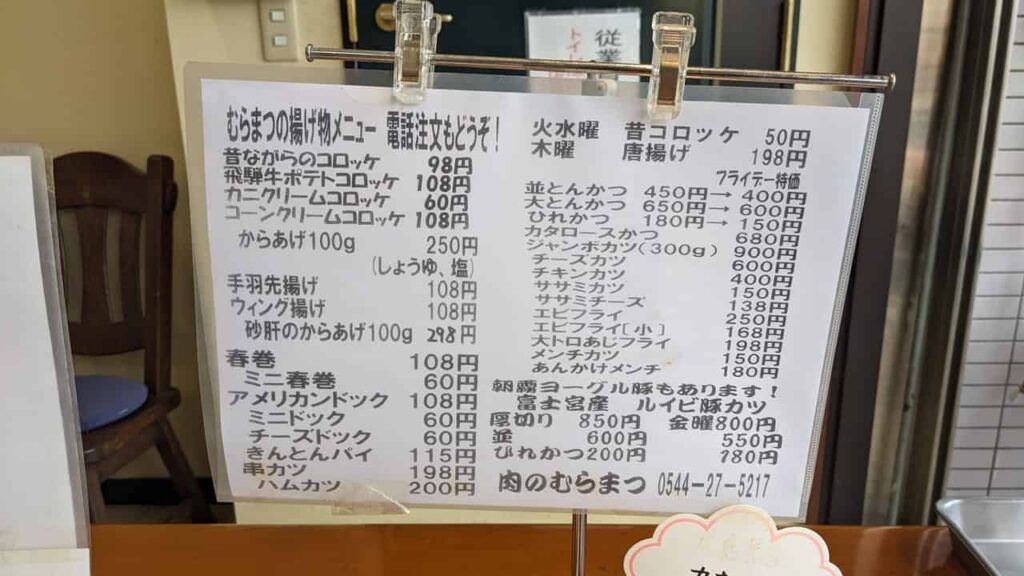 従業
トイ
むらまつの揚げ物メニュー 電話注文もどうぞ！
昔ながらのコロッケ 98円
飛騨牛ポテトコロッケ 108円
カニクリームコロッケ 60円
コーンクリームコロッケ 108円
からあげ100g 250円
(しょうゆ、塩)
手羽先揚げ 108円
ウィング揚げ 108円
砂肝のからあげ100g 298円
春巻 108円
ミニ春巻 60円
アメリカンドック 108円
ミニドック 60円
チーズドック 60円
きんとんパイ 115円
串カツ 198円
ハムカツ 200円
火水曜 昔コロッケ 50円
木曜 唐揚げ 198円
フライデー特価
並とんかつ 450円→ 400円
大とんかつ 650円→ 600円
ひれかつ 180円→ 150円
カタロースかつ 680円
ジャンボカツ(300g) 900円
チーズカツ 600円
チキンカツ 400円
ササミカツ 150円
ササミチーズ 138円
エビフライ 250円
エビフライ[小] 168円
大トロあじフライ 198円
メンチカツ 150円
あんかけメンチ 180円
朝霧ヨーグル豚もあります！
富士宮産 ルイビ豚カツ
厚切り 850円 金曜800円
並 600円 550円
ひれかつ200円 180円
肉のむらまつ 0544-27-5217